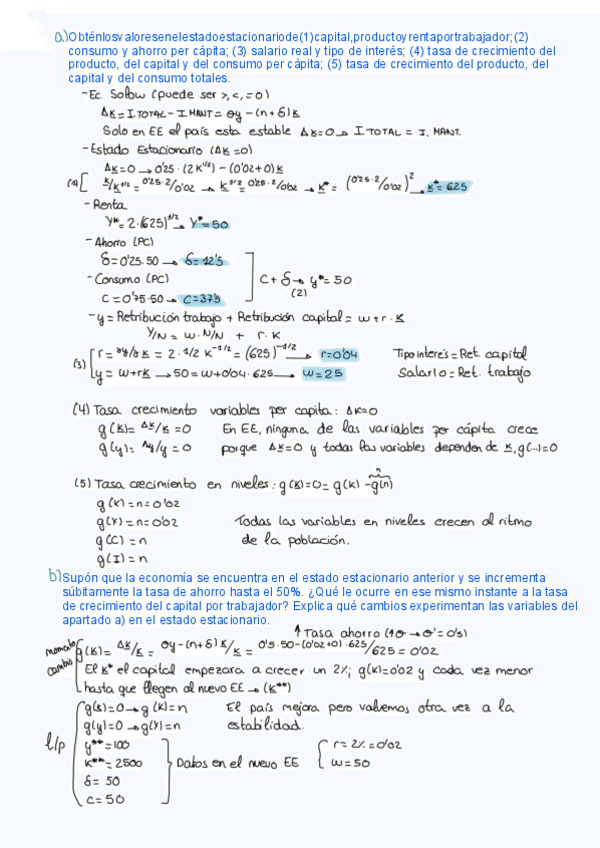 a) Obténlosvaloresenelestadoestacionariode(1)capital,productoyrentaportrabajador;(2)
consumo y ahorro per cápita; (3) salario real y tipo de interés; (4) tasa de crecimiento del
producto, del capital y del consumo per cápita; (5) tasa de crecimiento del producto, del
capital y del consumo totales.
- Ec. Solow (puede ser >, <, = 0)
Δk = I. TOTAL - I. MANT = σy - (n + δ)k
Solo en EE el país esta estable Δk=0 → I. TOTAL = I. MANT.
- Estado Estacionario (Δk = 0)
Δk=0 → 0'25 · (2k^1/2) - (0'02+0)k
(1) [ k/k^1/2 = 0'25·2/0'02 → k^1/2 = 0'25·2/0'02 → k* = (0'25·2/0'02)^2 → k* = 625
- Renta
y* = 2·(625)^1/2 → y* = 50
- Ahorro (PC)
δ = 0'25·50 → δ = 12'5
- Consumo (PC)
C + δ → y* = 50
(2)
C = 0'75·50 → C = 37'5
- y = Retribución trabajo + Retribución capital = w + r · k
Y/N = w · N/N + r · k
(3) r = ∂y/∂k = 2 · 1/2 k^-1/2 = (625)^-1/2 → r = 0'04 Tipo interés = Ret. capital
y = w + rk → 50 = w + 0'04 · 625 → w = 25 Salario = Ret. trabajo
(4) Tasa crecimiento variables per capita : Δk=0
g(k) = Δk/k = 0 En EE, ninguna de las variables per cápita crece
g(y) = Δy/y = 0 porque Δk=0 y todas las variables dependen de k, g(...)=0
(5) Tasa crecimiento en niveles : g(k)=0 = g(k) - g(n)
n
g(k) = n = 0'02
g(Y) = n = 0'02 Todas las variables en niveles crecen al ritmo
g(C) = n de la población.
g(I) = n
b) Supón que la economía se encuentra en el estado estacionario anterior y se incrementa
súbitamente la tasa de ahorro hasta el 50%. ¿Qué le ocurre en ese mismo instante a la tasa
de crecimiento del capital por trabajador? Explica qué cambios experimentan las variables del
apartado a) en el estado estacionario.
↑ Tasa ahorro (↑σ → σ' = 0'5)
momento cambio
g(k) = Δk/k = σy - (n + δ)k/k = 0'5·50 - (0'02+0)·625/625 = 0'02
El k* el capital empezara a crecer un 2%; g(k)=0'02 y cada vez menor
hasta que llegen al nuevo EE → (k**)
l/p
g(k) = 0 → g(k) = n El país mejora pero volvemos otra vez a la
g(y) = 0 → g(Y) = n estabilidad.
y** = 100
r = 2% = 0'02
k** = 2500 Datos en el nuevo EE w = 50
δ = 50
C = 50